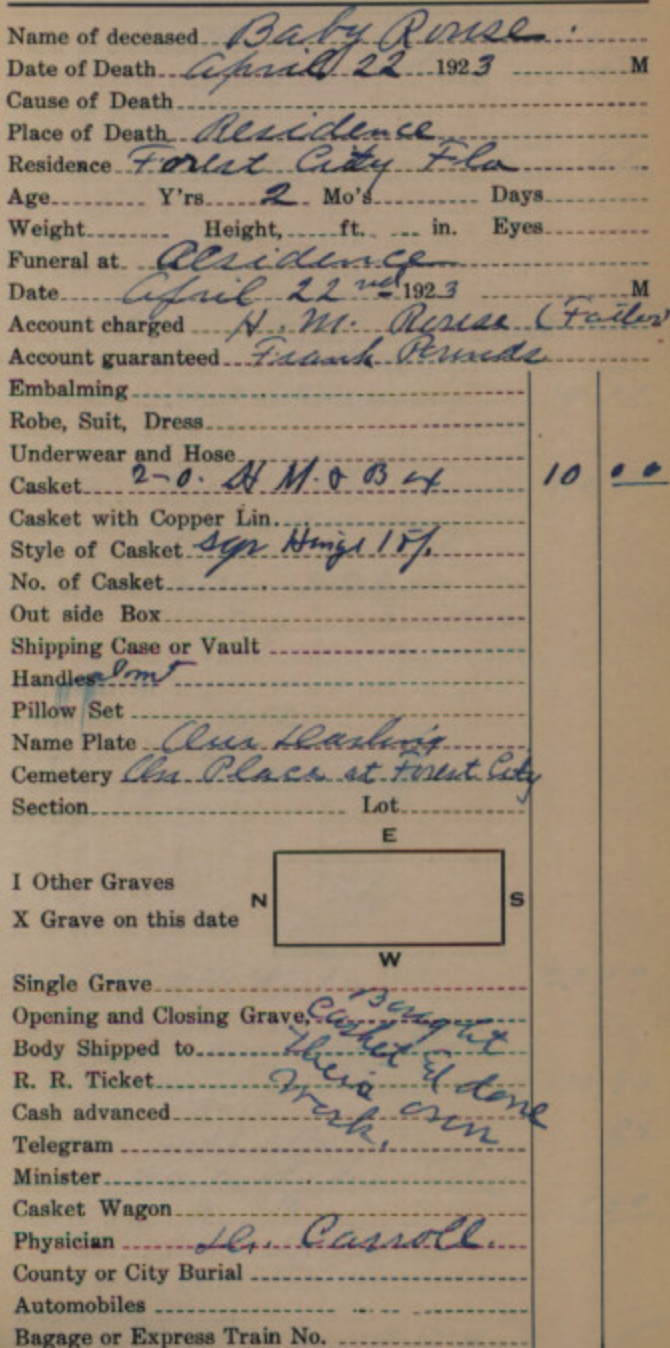 Name of deceased Baby Rouse.
Date of Death April 22 1923 M
Cause of Death
Place of Death Residence
Residence Forest City Fla
Age Y'rs 2 Mo's Days
Weight Height, ft. in. Eyes
Funeral at Residence
Date April 22nd 1923 M
Account charged H. M. Rouse (Father
Account guaranteed Frank Pounds
Embalming
Robe, Suit, Dress
Underwear and Hose
Casket 2-0. M. & Bx 10 00
Casket with Copper Lin.
Style of Casket sqr Hinge
No. of Casket
Out side Box
Shipping Case or Vault
Handles
Pillow Set
Name Plate Our Darling
Cemetery On Place at Forest City
Section Lot
E
I Other Graves
N S
X Grave on this date
W
Single Grave
Opening and Closing Grave,
Body Shipped to
R. R. Ticket
Cash advanced
Bought
Casket & done
their own
work.
Telegram
Minister
Casket Wagon
Physician Dr. Carroll.
County or City Burial
Automobiles
Bagage or Express Train No.